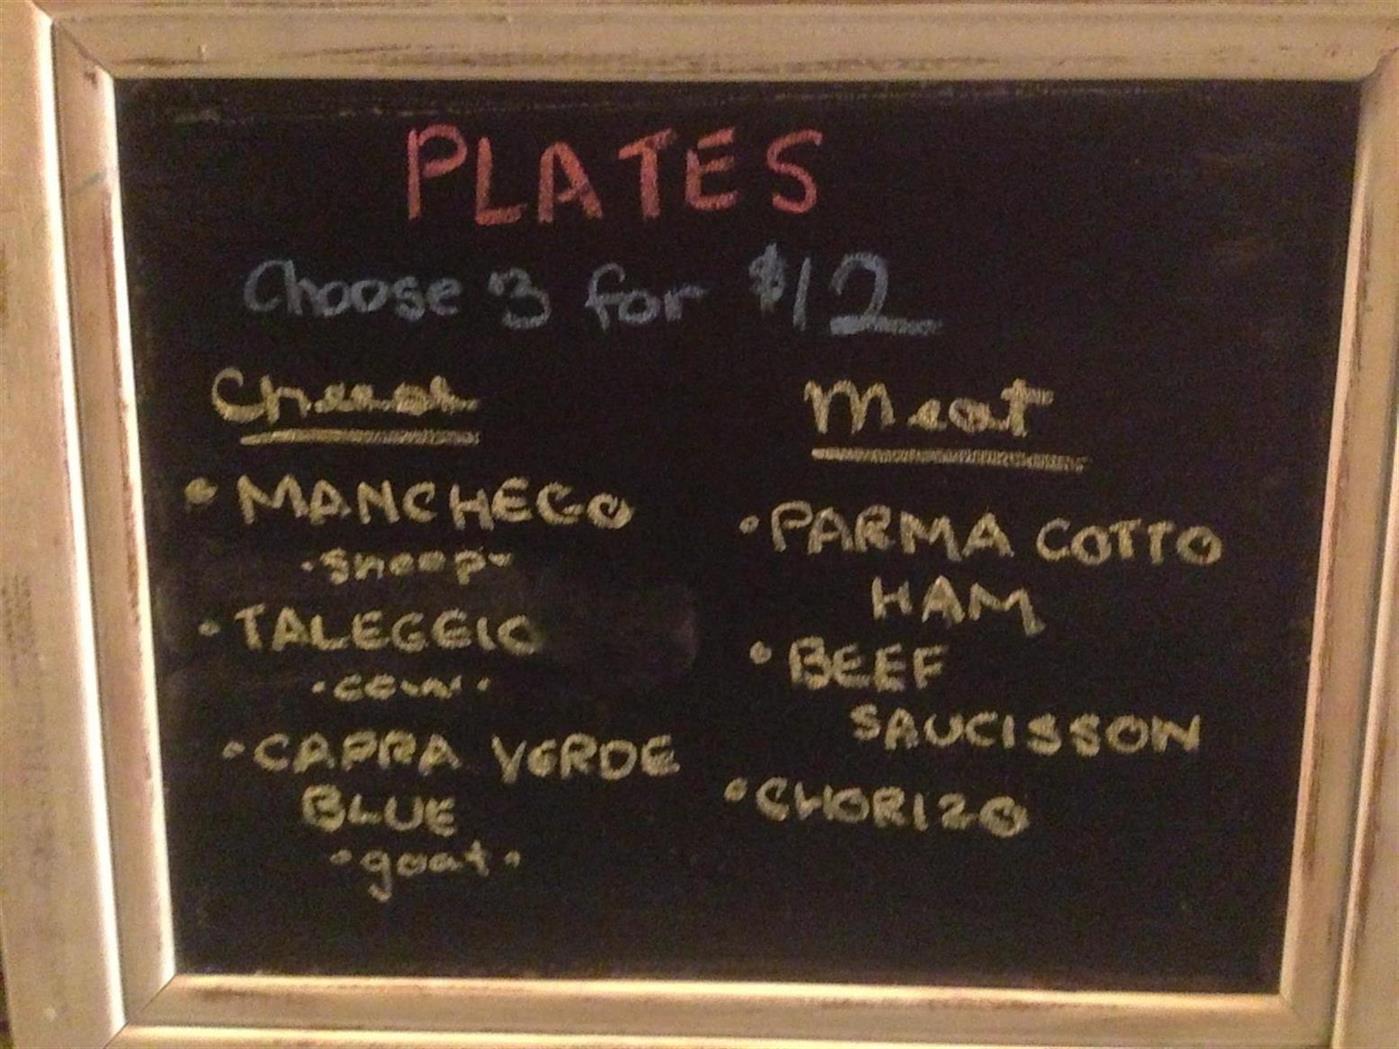 PLATES
Choose 3 for $12
Cheese
• MANCHEGO
·sheep·
• TALEGGIO
·cow·
• CAPRA VERDE
BLUE
·goat·
Meat
• PARMA COTTO
HAM
• BEEF
SAUCISSON
• CHORIZO